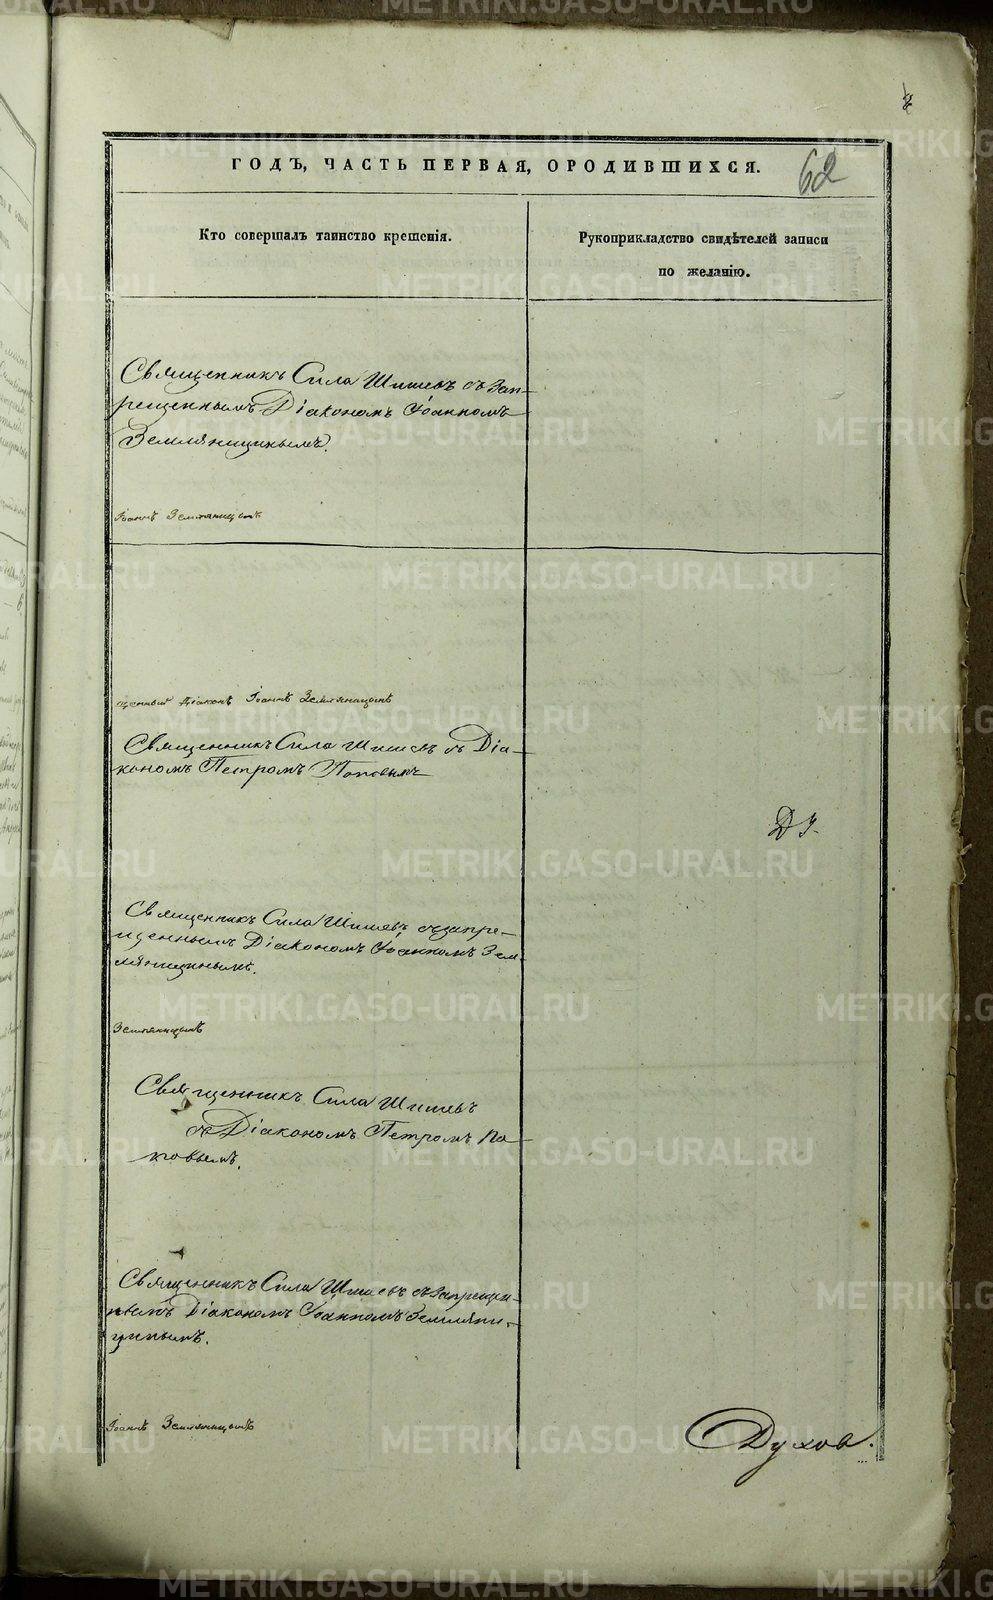 62
ГОДЪ, ЧАСТЬ ПЕРВАЯ, ОРОДИВШИХСЯ.
Кто совершалъ таинство крещенія.
Рукоприкладство свидѣтелей записи
по желанію.
Священникъ Сила Шишевъ съ Зап-
рещеннымъ Діакономъ Іоанномъ
Земляницинымъ.
Іоаннъ Земляницынъ
щенный діаконъ Іоаннъ Земляницынъ
Священникъ Сила Шишевъ съ Діа-
кономъ Петромъ Поповымъ
Священникъ Сила Шишевъ, съ запре-
щеннымъ Діакономъ Іоанномъ Зем-
ляницинымъ.
Земляницынъ
Священникъ Сила Шишевъ
съ Діакономъ Петромъ По-
повымъ.
Священникъ Сила Шишевъ съ Запрещен-
нымъ Діакономъ Іоанномъ Земляни-
цинымъ.
Іоаннъ Земляницынъ
Духов.
METRIKI.GASO-URAL.RU